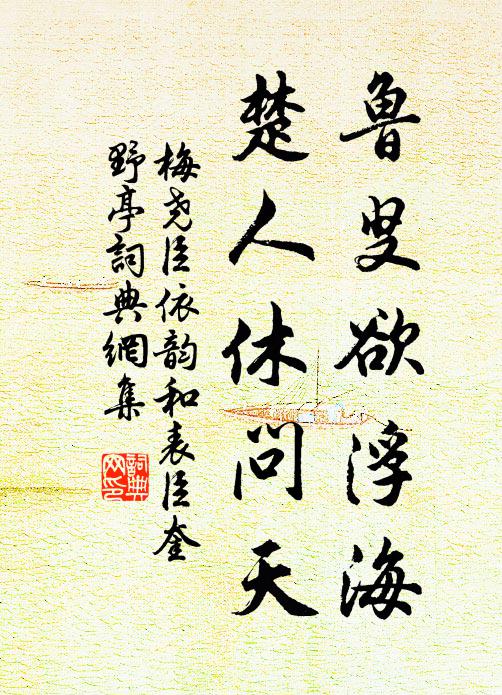 鲁叟欲浮海
楚人休问天
梅尧臣依韵和表臣奎
野亭詞典網集
詞典
网印